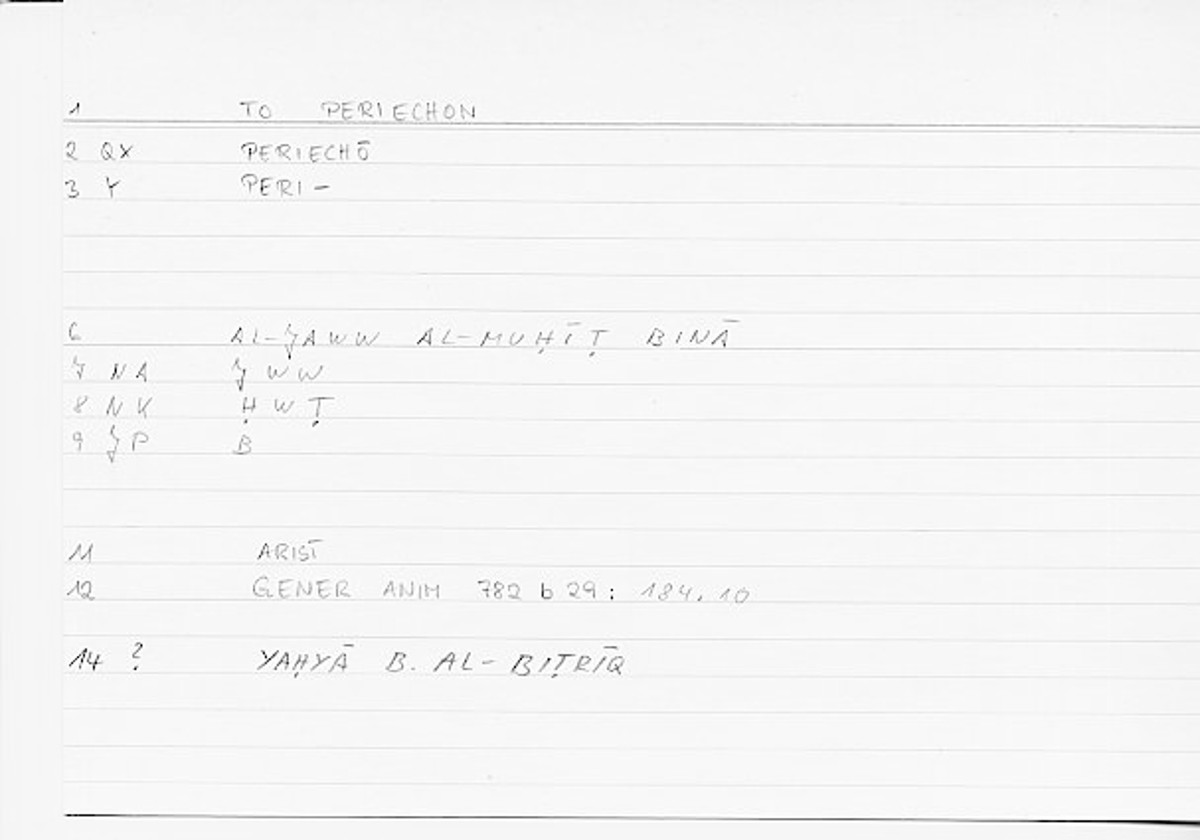 1 TO PERIECHON
2 QX PERIECHŌ
3 Y PERI-
6 AL-ǦAWW AL-MUḤĪṬ BINĀ
7 NA ǦWW
8 NK ḤWṬ
9 ǦP B
11 ARIST
12 GENER ANIM 782 b 29 : 184.10
14 ? YAḤYĀ B. AL-BIṬRĪQ